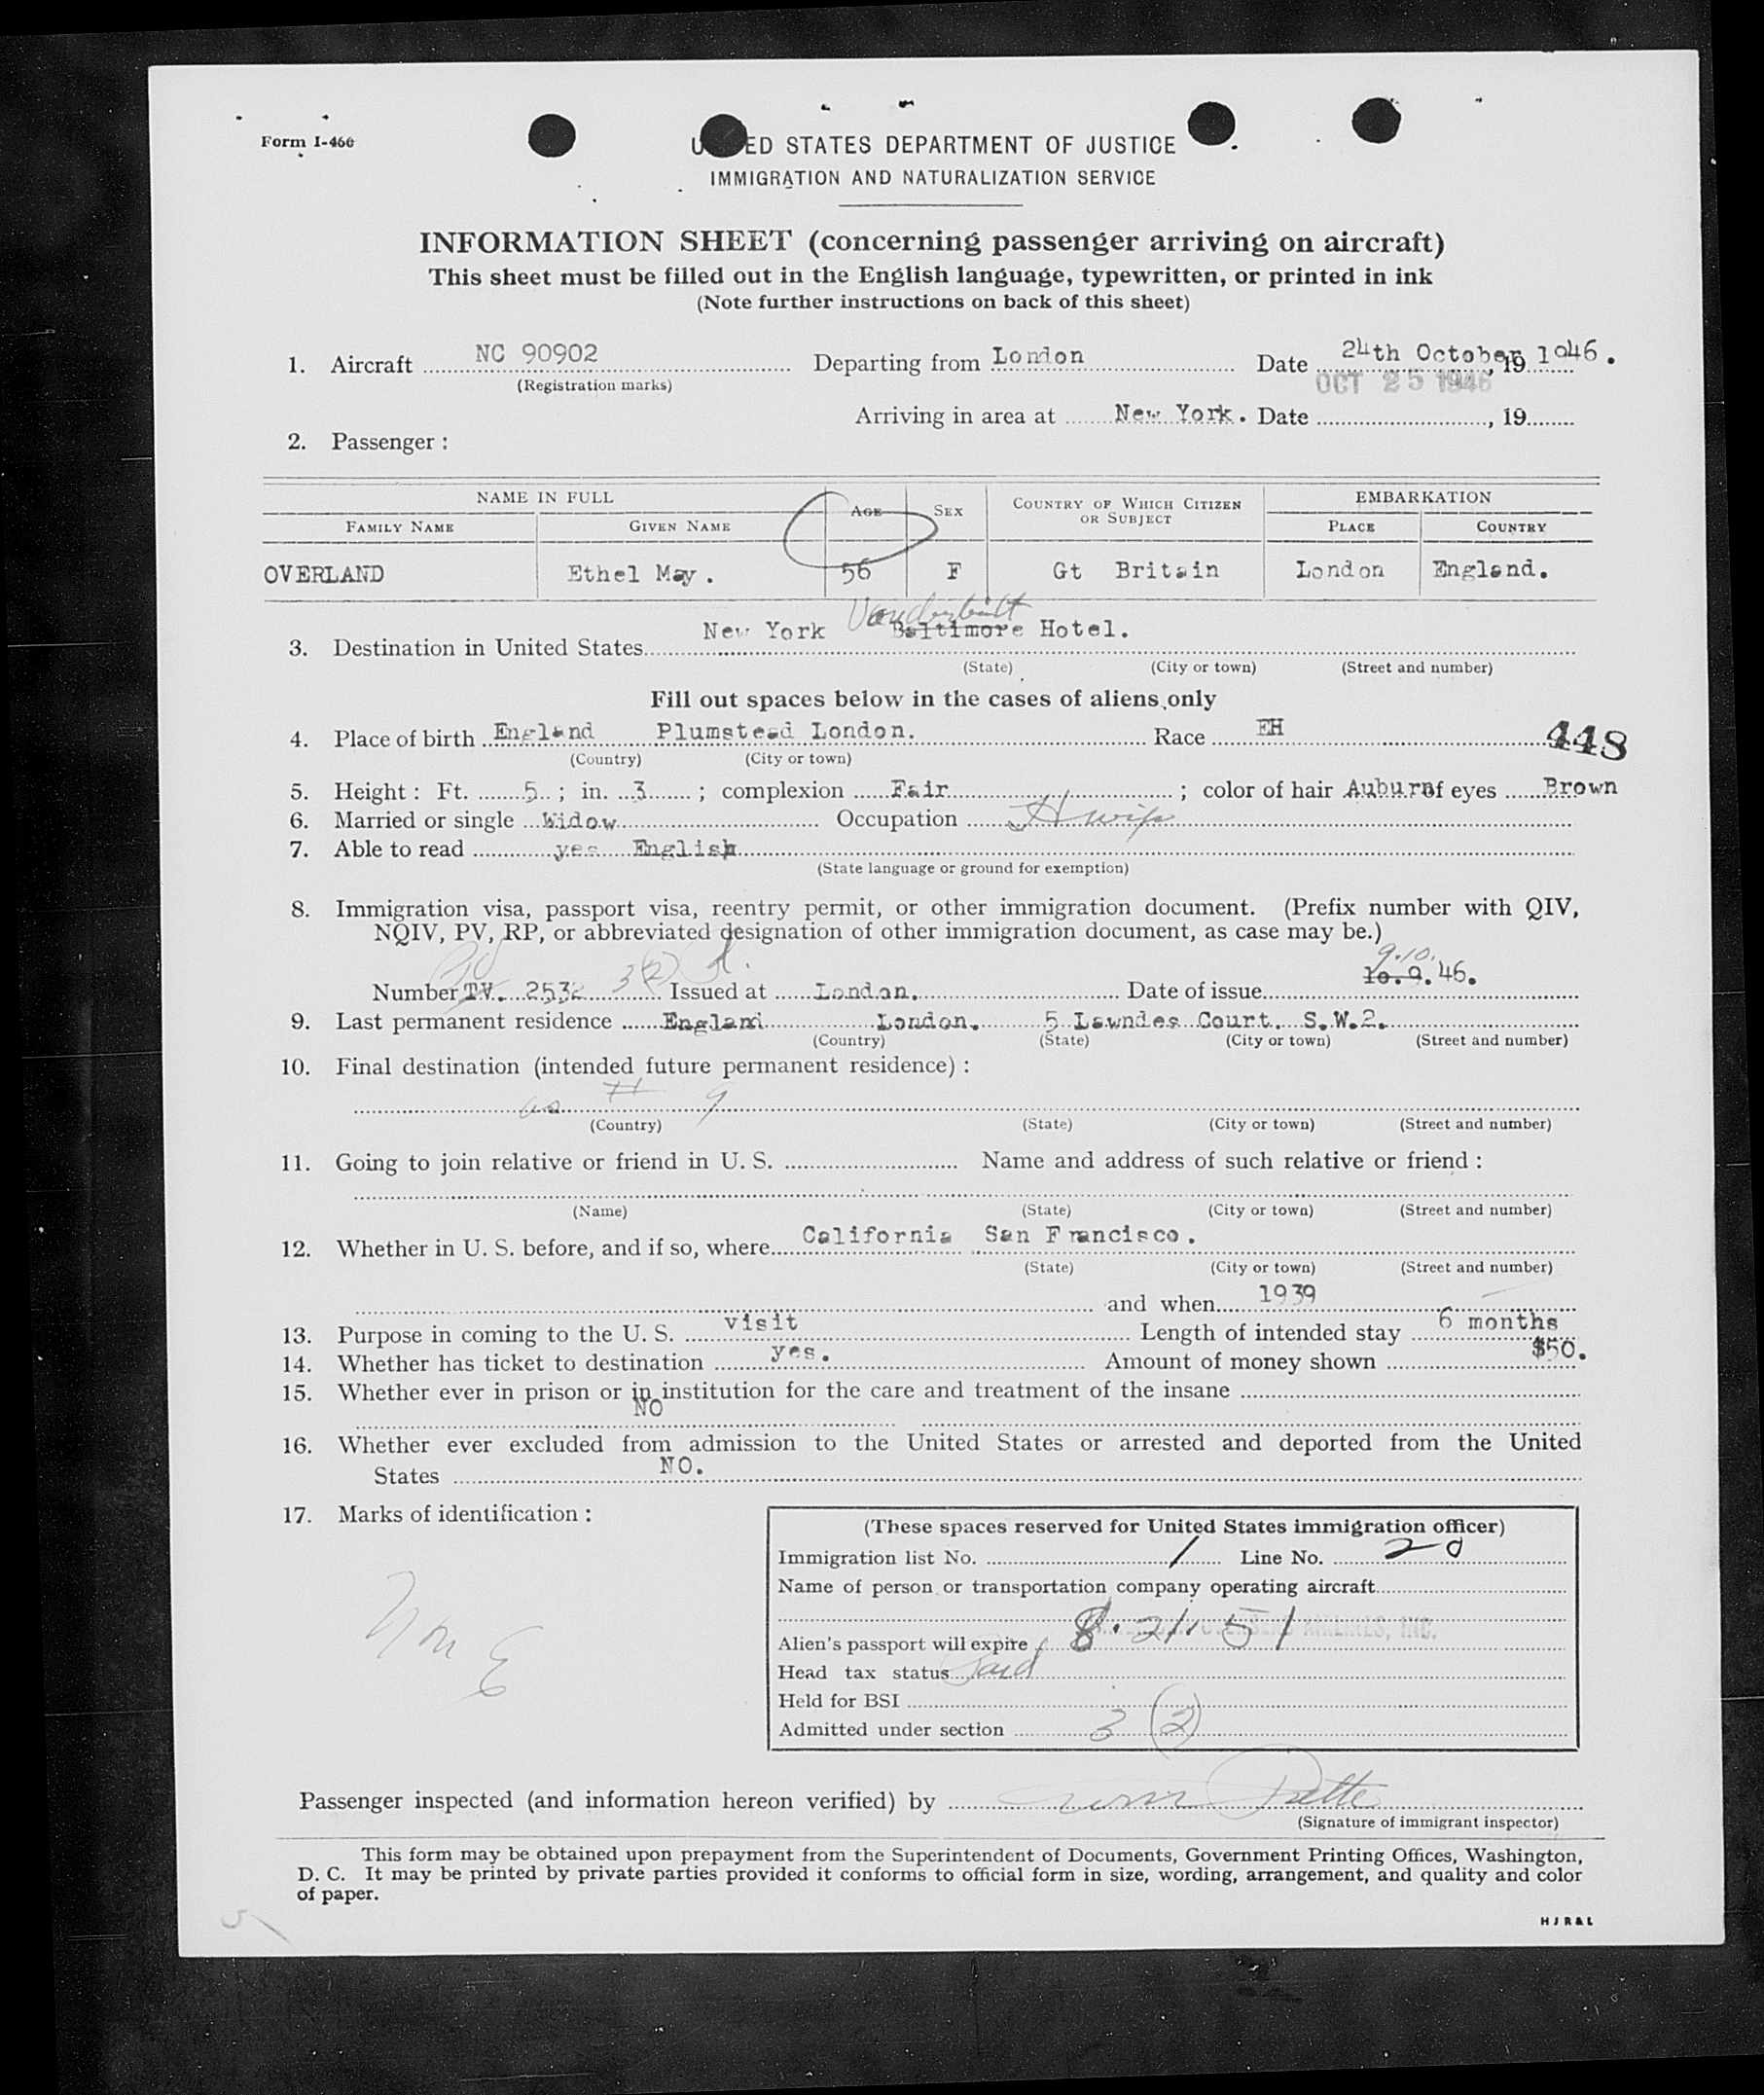 Form I-466
UNITED STATES DEPARTMENT OF JUSTICE
IMMIGRATION AND NATURALIZATION SERVICE
INFORMATION SHEET (concerning passenger arriving on aircraft)
This sheet must be filled out in the English language, typewritten, or printed in ink
(Note further instructions on back of this sheet)
1. Aircraft NC 90902 Departing from London Date 24th October, 19 1946.
(Registration marks)
OCT 25 1946
Arriving in area at New York. Date , 19
2. Passenger :
NAME IN FULL AGE SEX COUNTRY OF WHICH CITIZEN OR SUBJECT EMBARKATION
FAMILY NAME GIVEN NAME PLACE COUNTRY
OVERLAND Ethel May. 56 F Gt Britain London England.
Vanderbilt
3. Destination in United States New York Baltimore Hotel.
(State) (City or town) (Street and number)
Fill out spaces below in the cases of aliens only
4. Place of birth England Plumstead London. Race EH 448
(Country) (City or town)
5. Height : Ft. 5 ; in. 3 ; complexion Fair ; color of hair Auburn of eyes Brown
6. Married or single Widow Occupation H wife
7. Able to read yes English
(State language or ground for exemption)
8. Immigration visa, passport visa, reentry permit, or other immigration document. (Prefix number with QIV,
NQIV, PV, RP, or abbreviated designation of other immigration document, as case may be.)
9.10.
Number TV. 2532 3(2) Issued at London. Date of issue 10.9.46.
9. Last permanent residence England London. 5 Lawndes Court. S.W.2.
(Country) (State) (City or town) (Street and number)
10. Final destination (intended future permanent residence) :
as # 9
(Country) (State) (City or town) (Street and number)
11. Going to join relative or friend in U. S. Name and address of such relative or friend :
(Name) (State) (City or town) (Street and number)
12. Whether in U. S. before, and if so, where California San Francisco.
(State) (City or town) (Street and number)
and when 1939
13. Purpose in coming to the U. S. visit Length of intended stay 6 months
14. Whether has ticket to destination yes. Amount of money shown $50.
15. Whether ever in prison or in institution for the care and treatment of the insane
NO
16. Whether ever excluded from admission to the United States or arrested and deported from the United
States NO.
17. Marks of identification :
(These spaces reserved for United States immigration officer)
Immigration list No. 1 Line No. 20
Name of person or transportation company operating aircraft
OVERSEAS AIRLINES, INC.
Alien's passport will expire 8.21.51
Head tax status Paid
Held for BSI
Admitted under section 3 (2)
Passenger inspected (and information hereon verified) by
(Signature of immigrant inspector)
This form may be obtained upon prepayment from the Superintendent of Documents, Government Printing Offices, Washington,
D. C. It may be printed by private parties provided it conforms to official form in size, wording, arrangement, and quality and color
of paper.
H J R & L